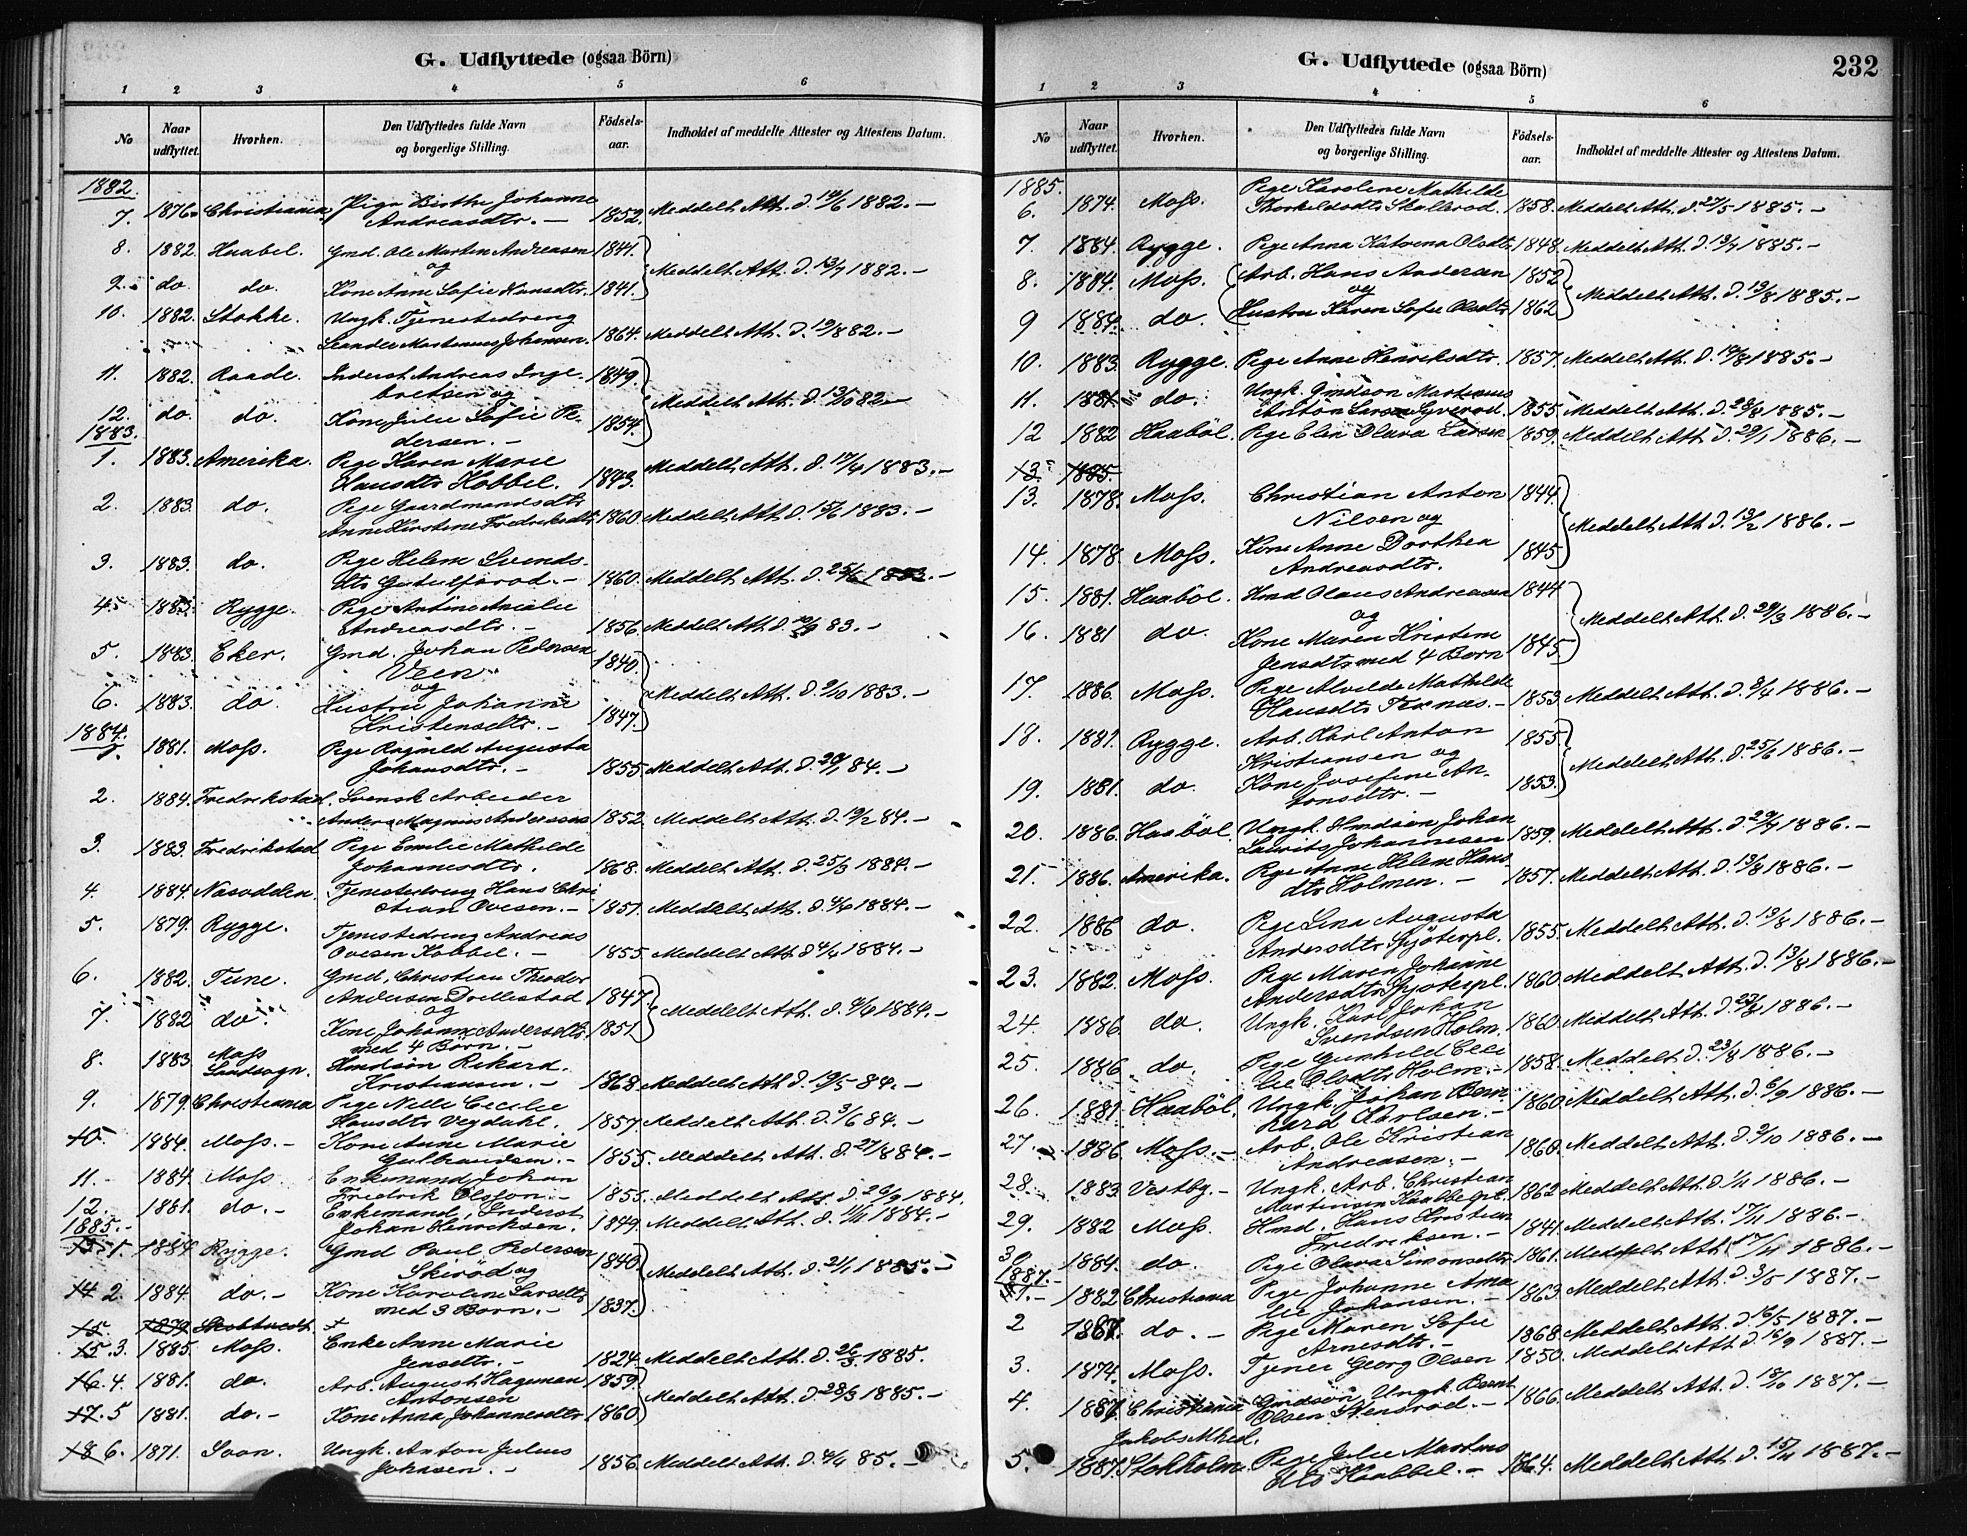 G. Udflyttede (ogsaa Börn)
1 2 3 4 5 6
No Naar udflyttet. Hvorhen. Den Udflyttedes fulde Navn og borgerlige Stilling. Födsels-aar. Indholdet af meddelte Attester og Attestens Datum.
1882.
7. 1876. Christiania Pige Birthe Johanne
Andreasdtr. — 1852. Meddelt Att. d. 1882. —
8. 1882. Haabøl. Gmd. Ole Martin Andreasen 1841.
og
Meddelt Att. d. 13/9 1882. —
9. do. do. Kone Anne Sofie Hansdtr. 1841.
10. 1882. Stokke. Ungk. Tjenestedreng
Leander Martinius Johansen. 1864. Meddelt Att. d. 882. —
11. 1882. Raade. Inderst Andreas Inge- 1849.
bretsen og
Meddelt Att. d. 13/10 82 —
12. do. do. Kone Julie Sofie Pe-
dersen. — 1854.
1883.
1. 1883. Amerika. Pige Karen Marie
Hansdtr Kobbel. 1843. Meddelt Att. d. 17/4 1883. —
2. 1883. do. Pige Gaardmandsdtr
Anne Kirstine Fredriksdtr 1860. Meddelt Att. d. 1883. —
3. 1883. do. Pige Helene Svends-
dtr — 1860. Meddelt Att. d. 25/6 1883. —
4. 1883. Rygge. Pige Antine Amalie
Andreasdtr. — 1856. Meddelt Att. d. 83. —
5. 1883. Eker. Gmd. Johan Pedersen 1840.
Veen
og
Meddelt Att. d. 9/10 1883. —
6. 1883. do. Hustru Johanne
Kristensdtr. — 1847.
1884.
1. 1881. Moss. Pige Ragnild Augusta
Johansdtr. — 1855. Meddelt Att. d. 29/1 84. —
2. 1884. Fredrikstad. Svensk Arbeider
Anders Magnus Anderssen 1852. Meddelt Att. d. 19/2 84. —
3. 1883. Fredrikstad Pige Emilie Mathilde
Johannesdtr. 1868. Meddelt Att. d. 25/3 1884. —
4. 1884. Næsodden. Tjenestedreng Hans Chri-
stian Ovesen. — 1851. Meddelt Att. d. 4/4 1884. —
5. 1879. Rygge. Tjenestedreng Andreas
Ovesen Kobbel. — 1855. Meddelt Att. d. 4/4 1884. —
6. 1882. Tune. Gmd. Christian Theodor
Andersen Drellestad 1847.
og
Meddelt Att. d. 1884. —
7. 1882 do. Kone Johanne Andersdtr. 1851.
med 4 Børn. —
8. 1883 Moss Landsogn. Hmdsøn Rikard
Kristiansen. — 1868. Meddelt Att. d. 19/5 84. —
9. 1879. Christiania Pige Nelli Cecilie
Hansdtr Vegdahl. 1857. Meddelt Att. d. 3/6 84. —
10. 1884. Moss. — Kone Anne Marie
Gulbrandsen. — 1855. Meddelt Att. d. 27/8 84. —
11. — 1884. Moss. Enkemand Johan
Fredrik Olsson. — 1855. Meddelt Att. d. 26/9 1884.
12. 1881. do. — Enkemand, Inderst
Johan Henriksen. 1849. Meddelt Att. d. 11/11 1884. —
1885. —
13 1. 1884. Rygge. Gmd Paul Pedersen 1840.
Skirød og
Meddelt Att. d. 21/1 1885. —
14 2. 1884. do. — Kone Karoline Larsdtr.
med 3 Børn. — 1837.
15. 1879
15. 3. 1885. Moss. Enke Anne Marie
Jensdtr. — 1824. Meddelt Att. d. 26/3 1885.
16. 4. 1881. do. Arb. August Hageman 1859.
Antonsen
Meddelt Att. d. 28/3 1885. —
17. 5 1881. do. — Kone Anna Johannesdtr 1860.
18 6. 1871. Soon. Ungk. Anton Julius
Johasen. — 1856. Meddelt Att. d. 4/4 85. —
G. Udflyttede (ogsaa Börn)
232
1 2 3 4 5 6
No Naar udflyttet. Hvorhen. Den Udflyttedes fulde Navn og borgerlige Stilling. Födsels-aar. Indholdet af meddelte Attester og Attestens Datum.
1885.
6. 1874. Moss. Pige Karoline Mathilde
Thorkildsdtr Skallerød. 1858. Meddelt Att. d. 27/5 1885. —
7. 1884. Rygge. Pige Anna Katrina Olsdtr. 1848. Meddelt Att. d. 1885. —
8. 1884. Moss. Arb. Hans Andersen 1852
og
Meddelt Att. d. 13/8 1885. —
9 1884. do. Hustru Karen Sofie Olsdtr 1862
10. 1883. Rygge. Pige Anne Henriksdtr. 1857. Meddelt Att. d. 1885. —
11. 1881 do. Ungk. Gmdsøn Martinius
Anton Larsen Syverød. 1855. Meddelt Att. d. 28/8 1885. —
12 1882 Haabøl. Pige Elen Olava Larsen 1859. Meddelt Att. d. 29/1 1886. —
13 1885.
13. 1878. Moss. Christian Anton 1844.
Nilsen og
Meddelt Att. d. 13/2 1886. —
14. 1878. Moss. Kone Anne Dorthea 1845.
Andreasdtr.
15. 1881. Haabøl. Hmd Olaus Andreasen 1844
og
Meddelt Att. d. 29/3 1886. —
16. 1881 do. Kone Maren Kristine
Jensdtr med 4 Børn 1845.
17. 1886. Moss. Pige Alvilde Mathilde
Hansdtr — 1853. Meddelt Att. d. 3/4 1886. —
18. 1881. Rygge. Arb. Karl Anton 1855.
Kristiansen og
Meddelt Att. d. 25/6 1886. —
19. 1881. do. Kone Josefine An-
tonsdtr. — 1853.
20. 1886. Haabøl. Ungk. Hmdsøn Johan
Laurits Johannesen 1859. Meddelt Att. d. 1886. —
21. 1886. Amerika. Pige Anne Helene Hans-
dtr Holmen. — 1857. Meddelt Att. d. 13/8 1886. —
22. 1886 do. Pige Lina Augusta
Andersdtr 1855. Meddelt Att. d. 13/8 1886. —
23. 1882. Moss. Pige Maren Johanne
Andersdtr 1860. Meddelt Att. d. 13/8 1886. —
24. 1886 do. Ungk. Karl Johan
Svendsen Holm. 1860. Meddelt Att. d. 23/8 1886. —
25. 1886. do. Pige Gunhild Ceci-
lie Olsdtr Holm. — 1858. Meddelt d. 23/8 1886. —
26. 1881. Haabøl. Ungk. Johan Bern-
hard Karlsen. — 1860. Meddelt Att. d. 6/9 1886. —
27. 1886 Moss. — Arb. Ole Kristian
Andreasen. — 1860. Meddelt Att. d. 9/10 1886. —
28. 1883. Vestby. — Ungk. Arb. Christian
Martinsen 1862. Meddelt Att. d. 1/11 1886. —
29. 1882 Moss. Hmd. Hans Kristian
Fredriksen. — 1841. Meddelt Att. d. 17/11 1886. —
30. 1884. do. Pige Olava Simonsdtr. 1861. Meddelt Att. 17/11 1886. —
1887. —
1. — 1882 Christiania Pige Johanne Ama-
lie Johansen. — 1863. Meddelt Att. d. 3/5 1887. —
2 1887. do. — Pige Maren Sofie
Arnesdtr. — 1868. Meddelt Att. d. 16/5 1887. —
3. 1874. Moss. Tjener Georg Olsen 1850. Meddelt Att. d. 16/9 1887. —
4 1887. Christiania Gmdsøn Ungk. Bernt
Olsen Stensrød. — 1866. Meddelt Att. d. 18/10 1887. —
5. 1887. Jakobs Mhed. Stokholm. Pige Julie Martins-
dtr Kaabbel. — 1864. Meddelt Att. d. 15/11 1887. —